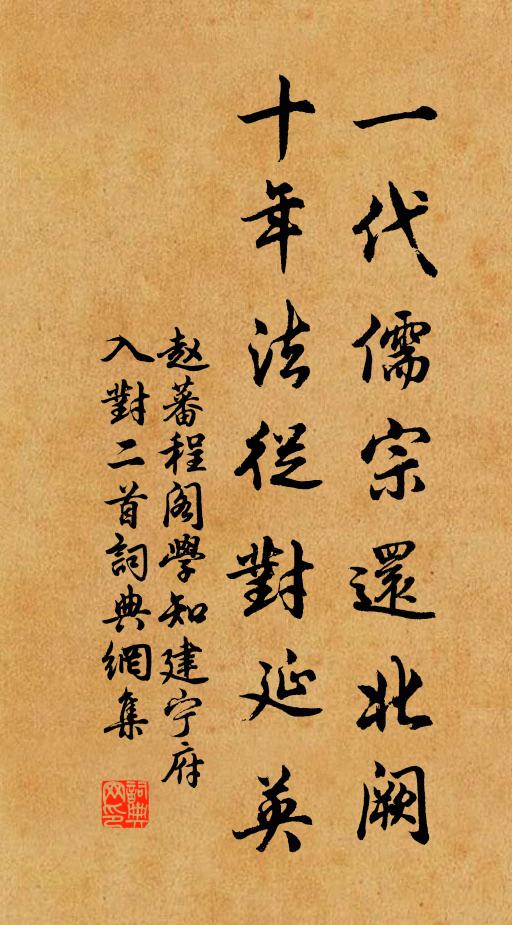 一代儒宗還北阙
十年法從對延英
赵蕃程阁學知建宁府
入對二首詞典網集
詞典
网印